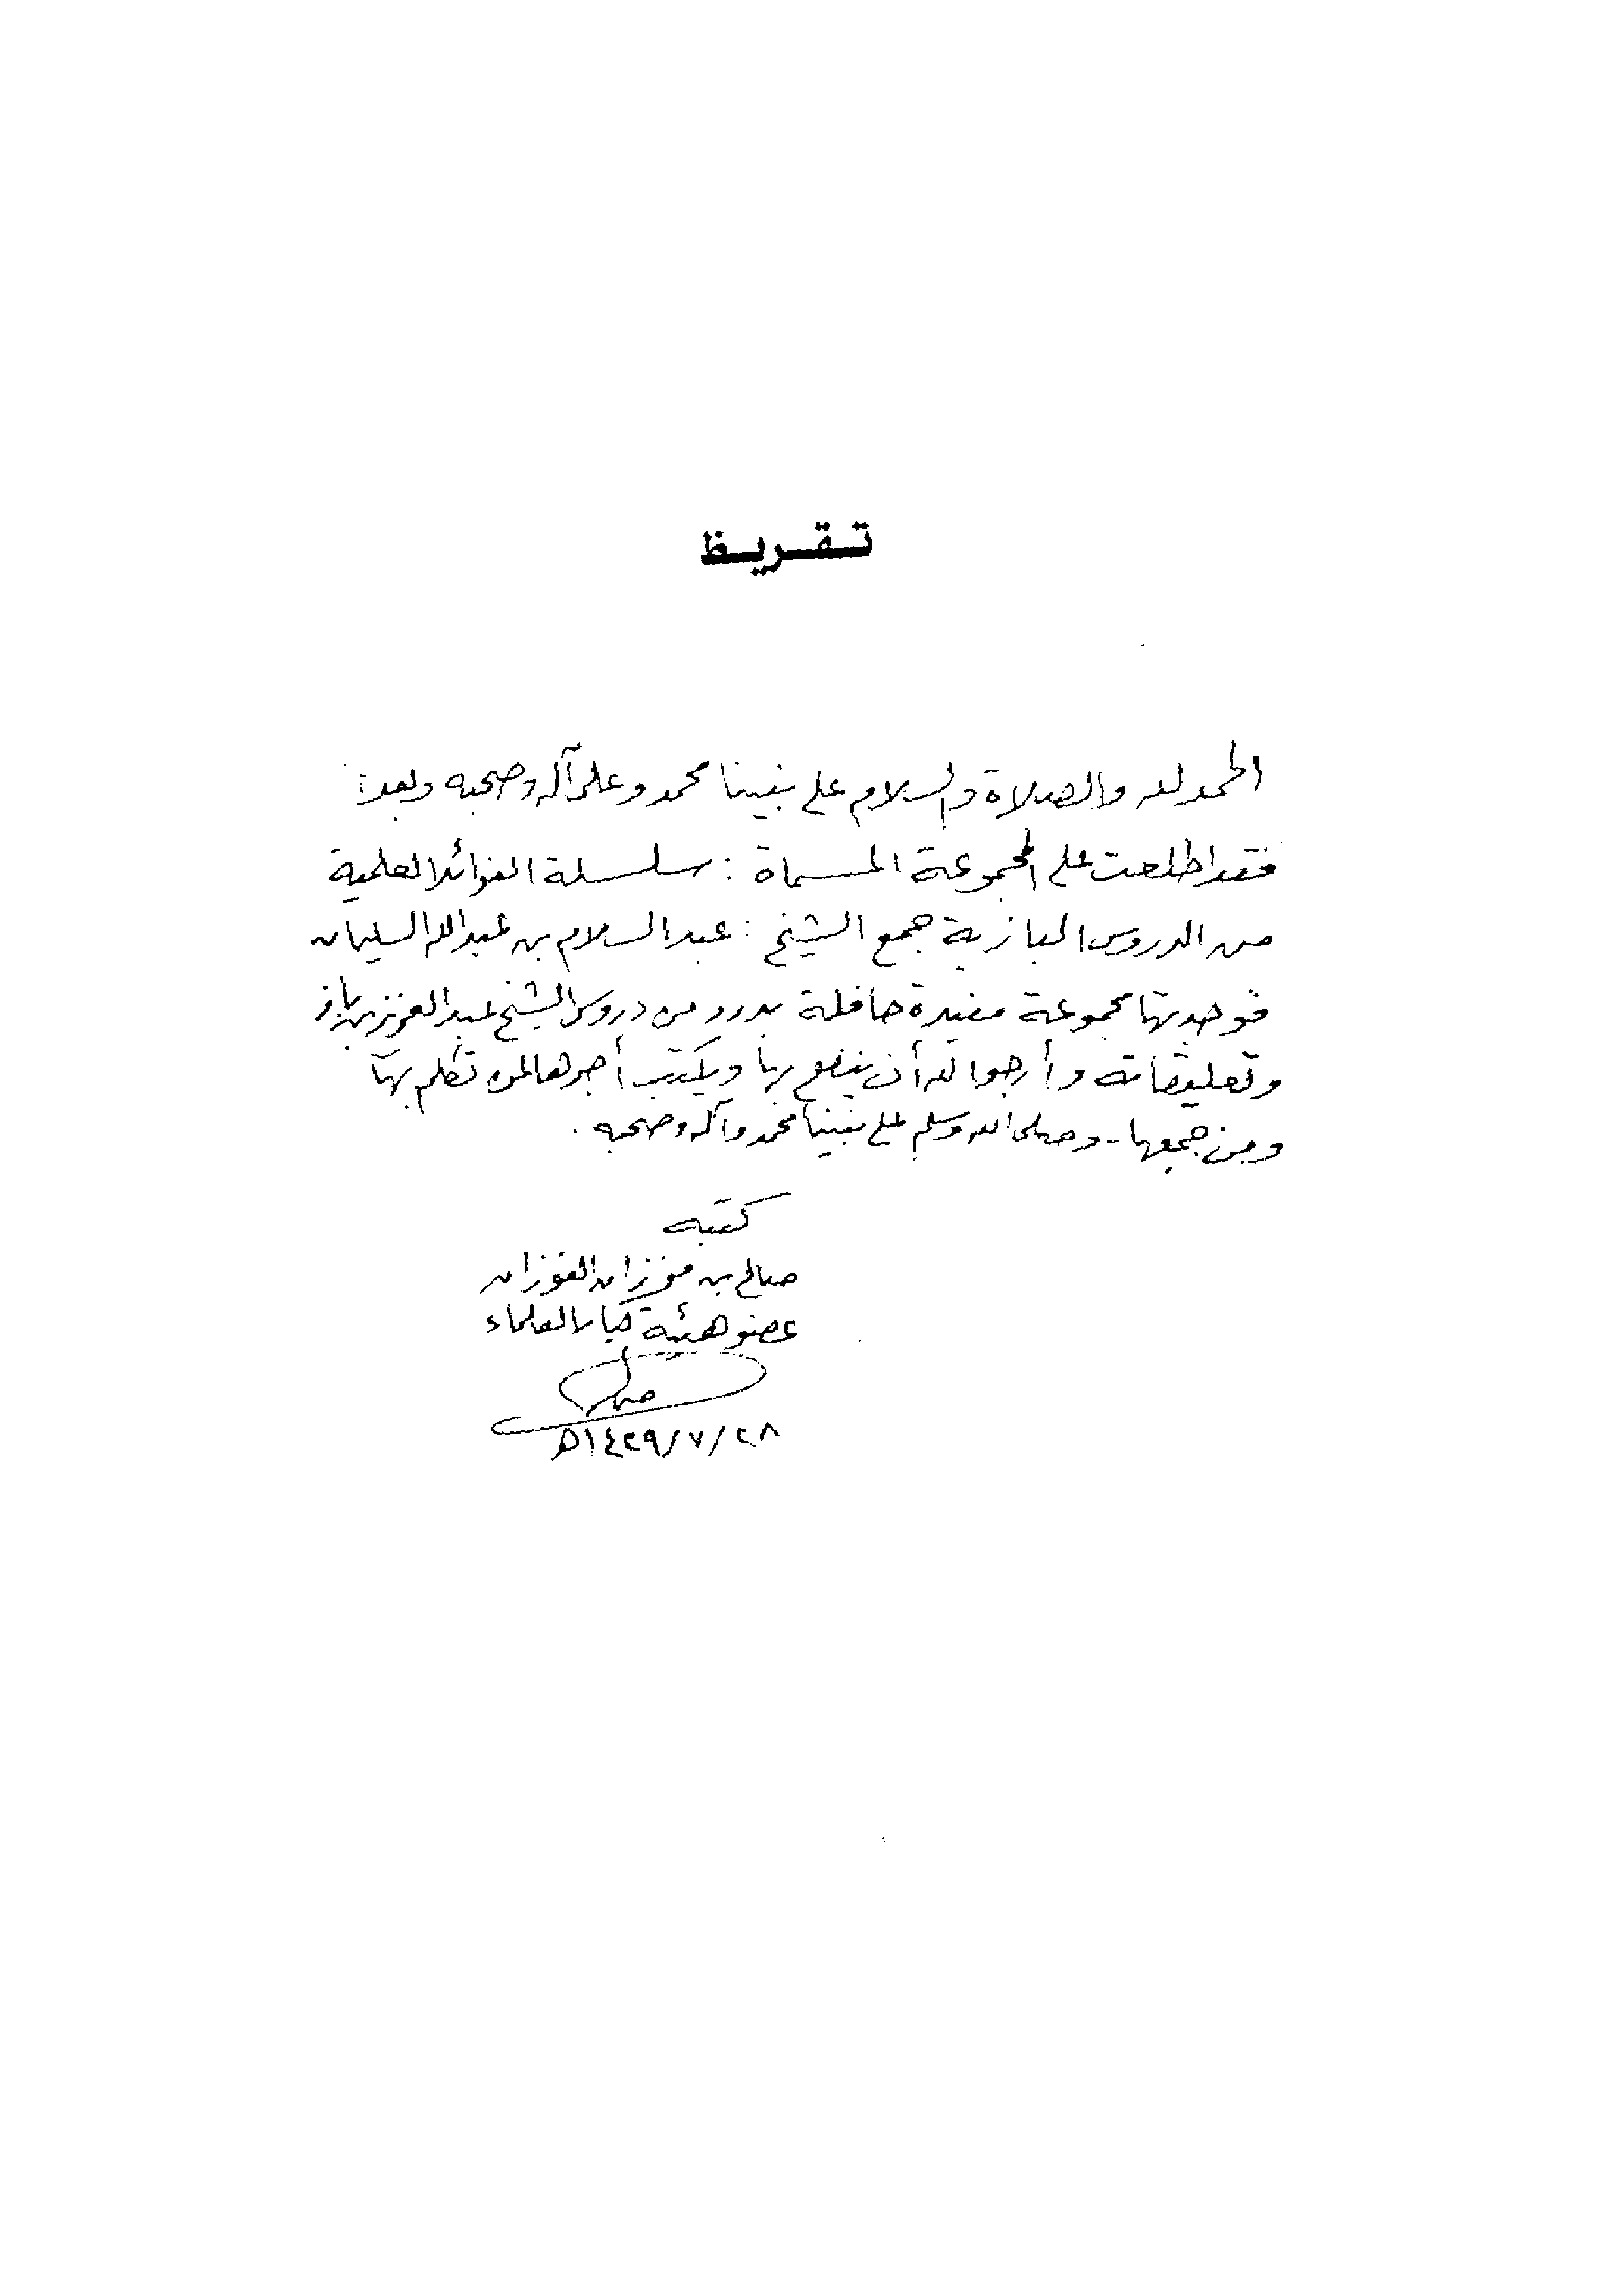 تقريظ
الحمد لله والصلاة والسلام على نبينا محمد وعلى آله وصحبه وبعد:
فقد اطلعت على المجموعة المسماة: سلسلة الفوائد العلمية
من الدروس البازية جمع الشيخ: عبد السلام بن عبد الله السليمان
فوجدتها مجموعة مفيدة حافلة بدرر من دروس الشيخ عبد العزيز بن باز
وتعليقاته وأرجو الله أن ينفع بها ويكتب أجرها لمن تكلم بها
ومن جمعها - وصلى الله وسلم على نبينا محمد وآله وصحبه.
كتبه
صالح بن فوزان الفوزان
عضو هيئة كبار العلماء
صالح
٢٨/٧/١٤٢٩هـ